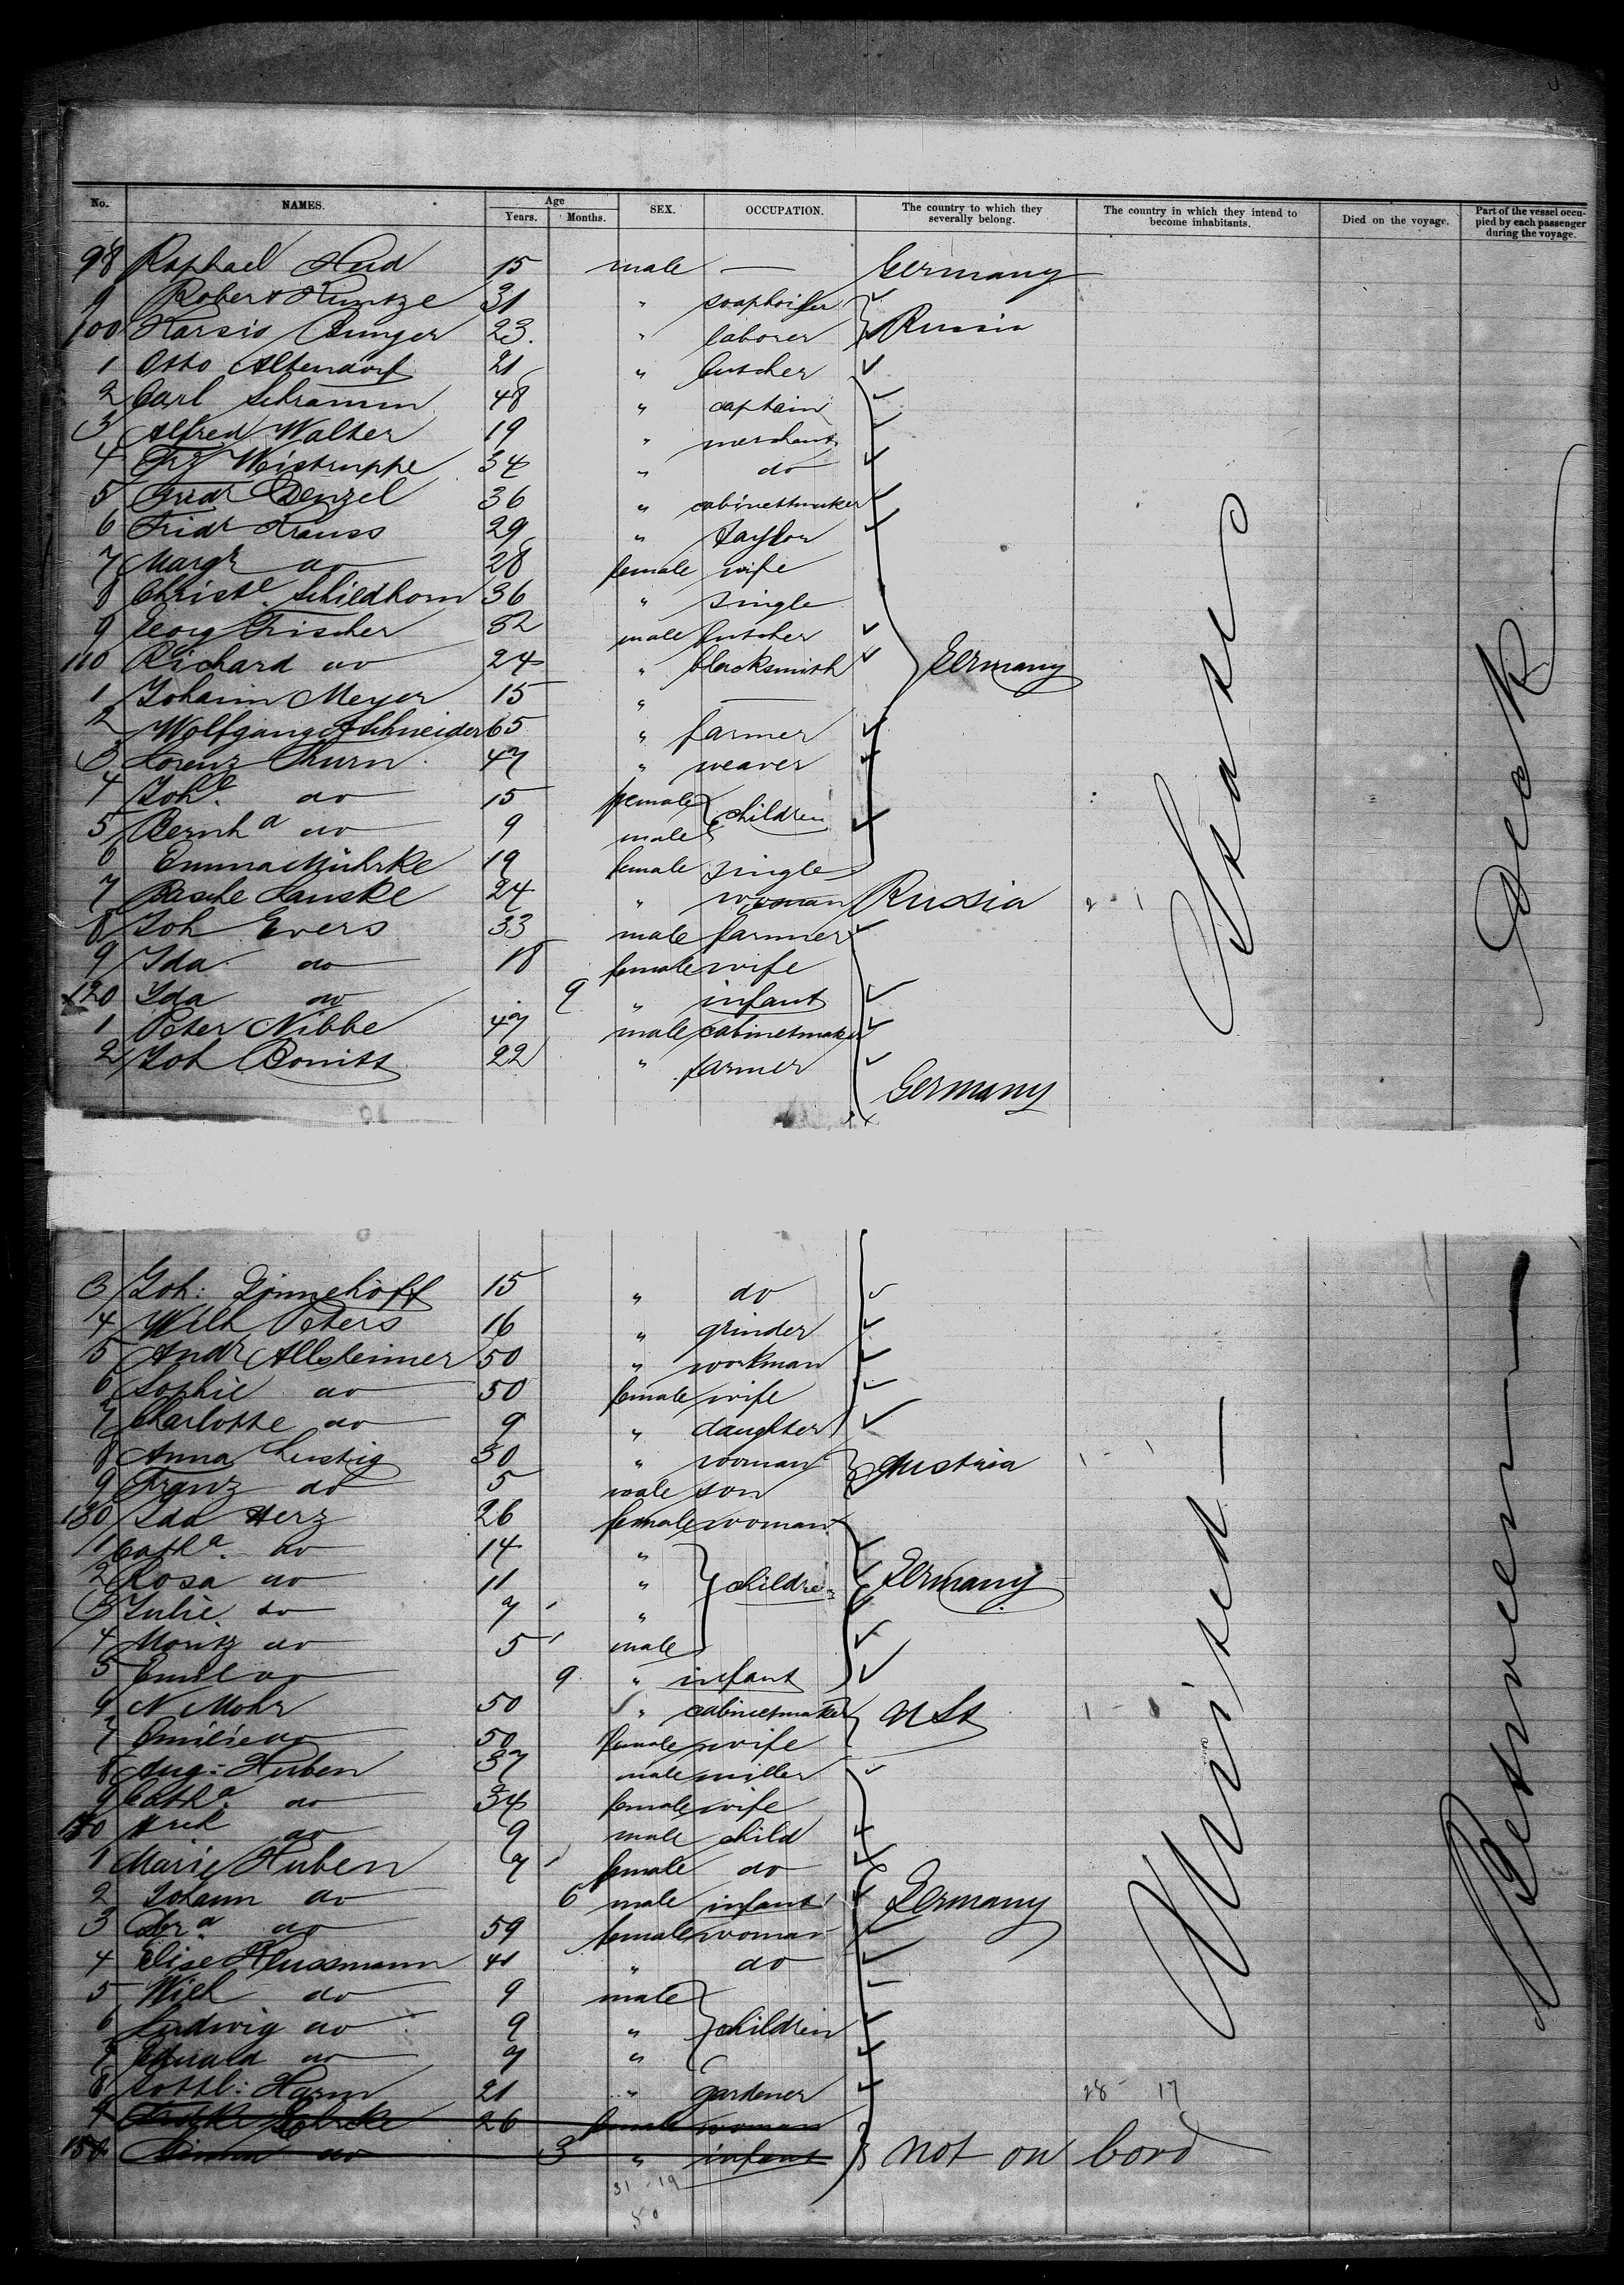 No. NAMES. Age Years. Months. SEX. OCCUPATION. The country to which they severally belong. The country in which they intend to become inhabitants. Died on the voyage. Part of the vessel occupied by each passenger during the voyage.
98 Raphael 15 male — Germany
9 Robert Kuntze 31 "
100 23. " laborer Russia
1 Otto Altendorf 21 " butcher
2 Carl Schramm 48 " captain
3 Alfred Walter 19 " merchant
4 Frz 34 " do
5 Fridr Denzel 36 " cabinettmaker
6 Fridr Krauss 29 " taylor
7 Margr do 28 female wife
8 Christe Schildhorn 36 " single
9 Georg Frischer 32 male butcher
110 Richard do 24 " blacksmith Germany
1 Johann Meyer 15 " —
2 Wolfgang Schneider 65 " farmer
3 Lorenz Thurn 47 " weaver
4 Joh.a do 15 female children
5 Bernhd do 9 male
6 Emma Mührke 19 female single
7 24 " woman Russia 2 - 1
8 Joh Evers 33 male farmer
9 Ida do 18 female wife
120 Ida do 9 " infant
1 Peter Nibbe 47 male cabinetmaker
2 Joh 22 " farmer
Germany
3 Joh: 15 " do
4 Wilh Peters 16 " grinder
5 Andr Allsheimer 50 " workman
6 Sophie do 50 female wife
7 Charlotte do 9 " daughter
8 Anna Lustig 30 " woman Austria 1 - 1
9 Franz do 5 male son
130 Ida Herz 26 female woman
1 Catha. do 14 "
2 Rosa do 11 " children Germany
3 Julie do 7 "
4 Moritz do 5 male
5 Emil do 9 " infant
6 N Mohr 50 " cabinetmaker U St 1 -
7 Emilie do 50 female wife
8 Aug: Huben 37 male miller
9 Catha. do 34 female wife
140 do 9 male child
1 Marie Huben 7 female do
2 Johann do 6 male infant Germany
3 do 59 female woman
4 Elise Klussmann 41 " do
5 Wilh do 9 male
6 Ludwig do 9 " children
7 Ewald do 7 "
8 Gottl: Harm 21 " gardener 28 - 17
9 26 female woman
150 do 3 " infant not on bord
31 - 19
50
United States
Between Deck